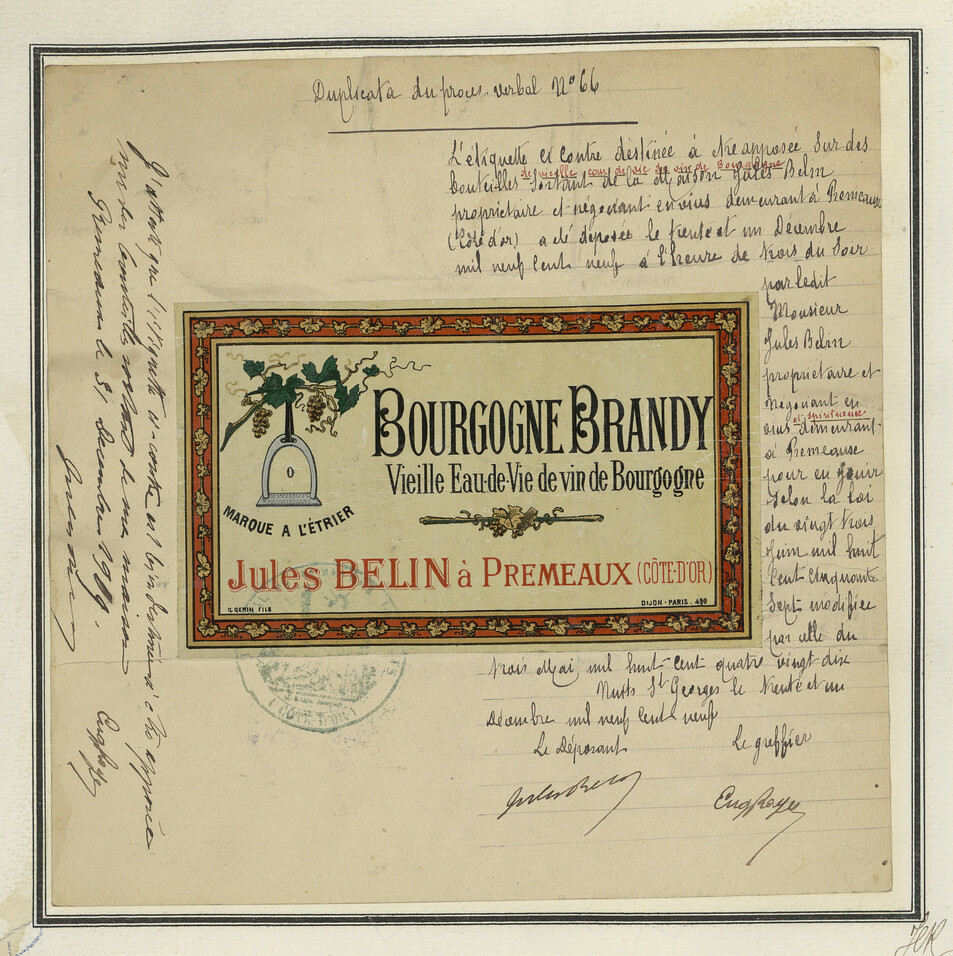 Duplicata du procès-verbal N° 66
L'étiquette ci contre destinée à être apposée sur des
de vieille eau de vie de vin de Bourgogne
bouteilles sortant de la Maison Jules Belin
propriétaire et négociant en vins demeurant à Premeaux
(Côte d'or) a été déposée le trente et un Décembre
mil neuf cent neuf à l'heure de trois du soir
par ledit
Monsieur
Jules Belin
propriétaire et
négociant en
et spiritueux
vins demeurant
à Premeaux
pour en jouir
selon la loi
du vingt trois
Juin mil huit
cent cinquante
sept modifiée
par celle du
trois Mai mil huit-cent quatre vingt-dix
Nuits St Georges le trente et un
Décembre mil neuf cent neuf
Le Déposant
Le greffier
Jules Belin
Eug Royer
BOURGOGNE BRANDY
Vieille Eau-de-Vie de vin de Bourgogne
0
MARQUE A L'ÉTRIER
Jules BELIN à PREMEAUX (CÔTE-D'OR)
G. GEMIN FILS
DIJON - PARIS. 490
(CÔTE D'OR)
J'atteste que l'étiquette ci-contre est bien destinée à être apposée
sur des bouteilles sortant de ma maison
Premeaux le 31 décembre 1909.
Jules Belin
Eug Royer